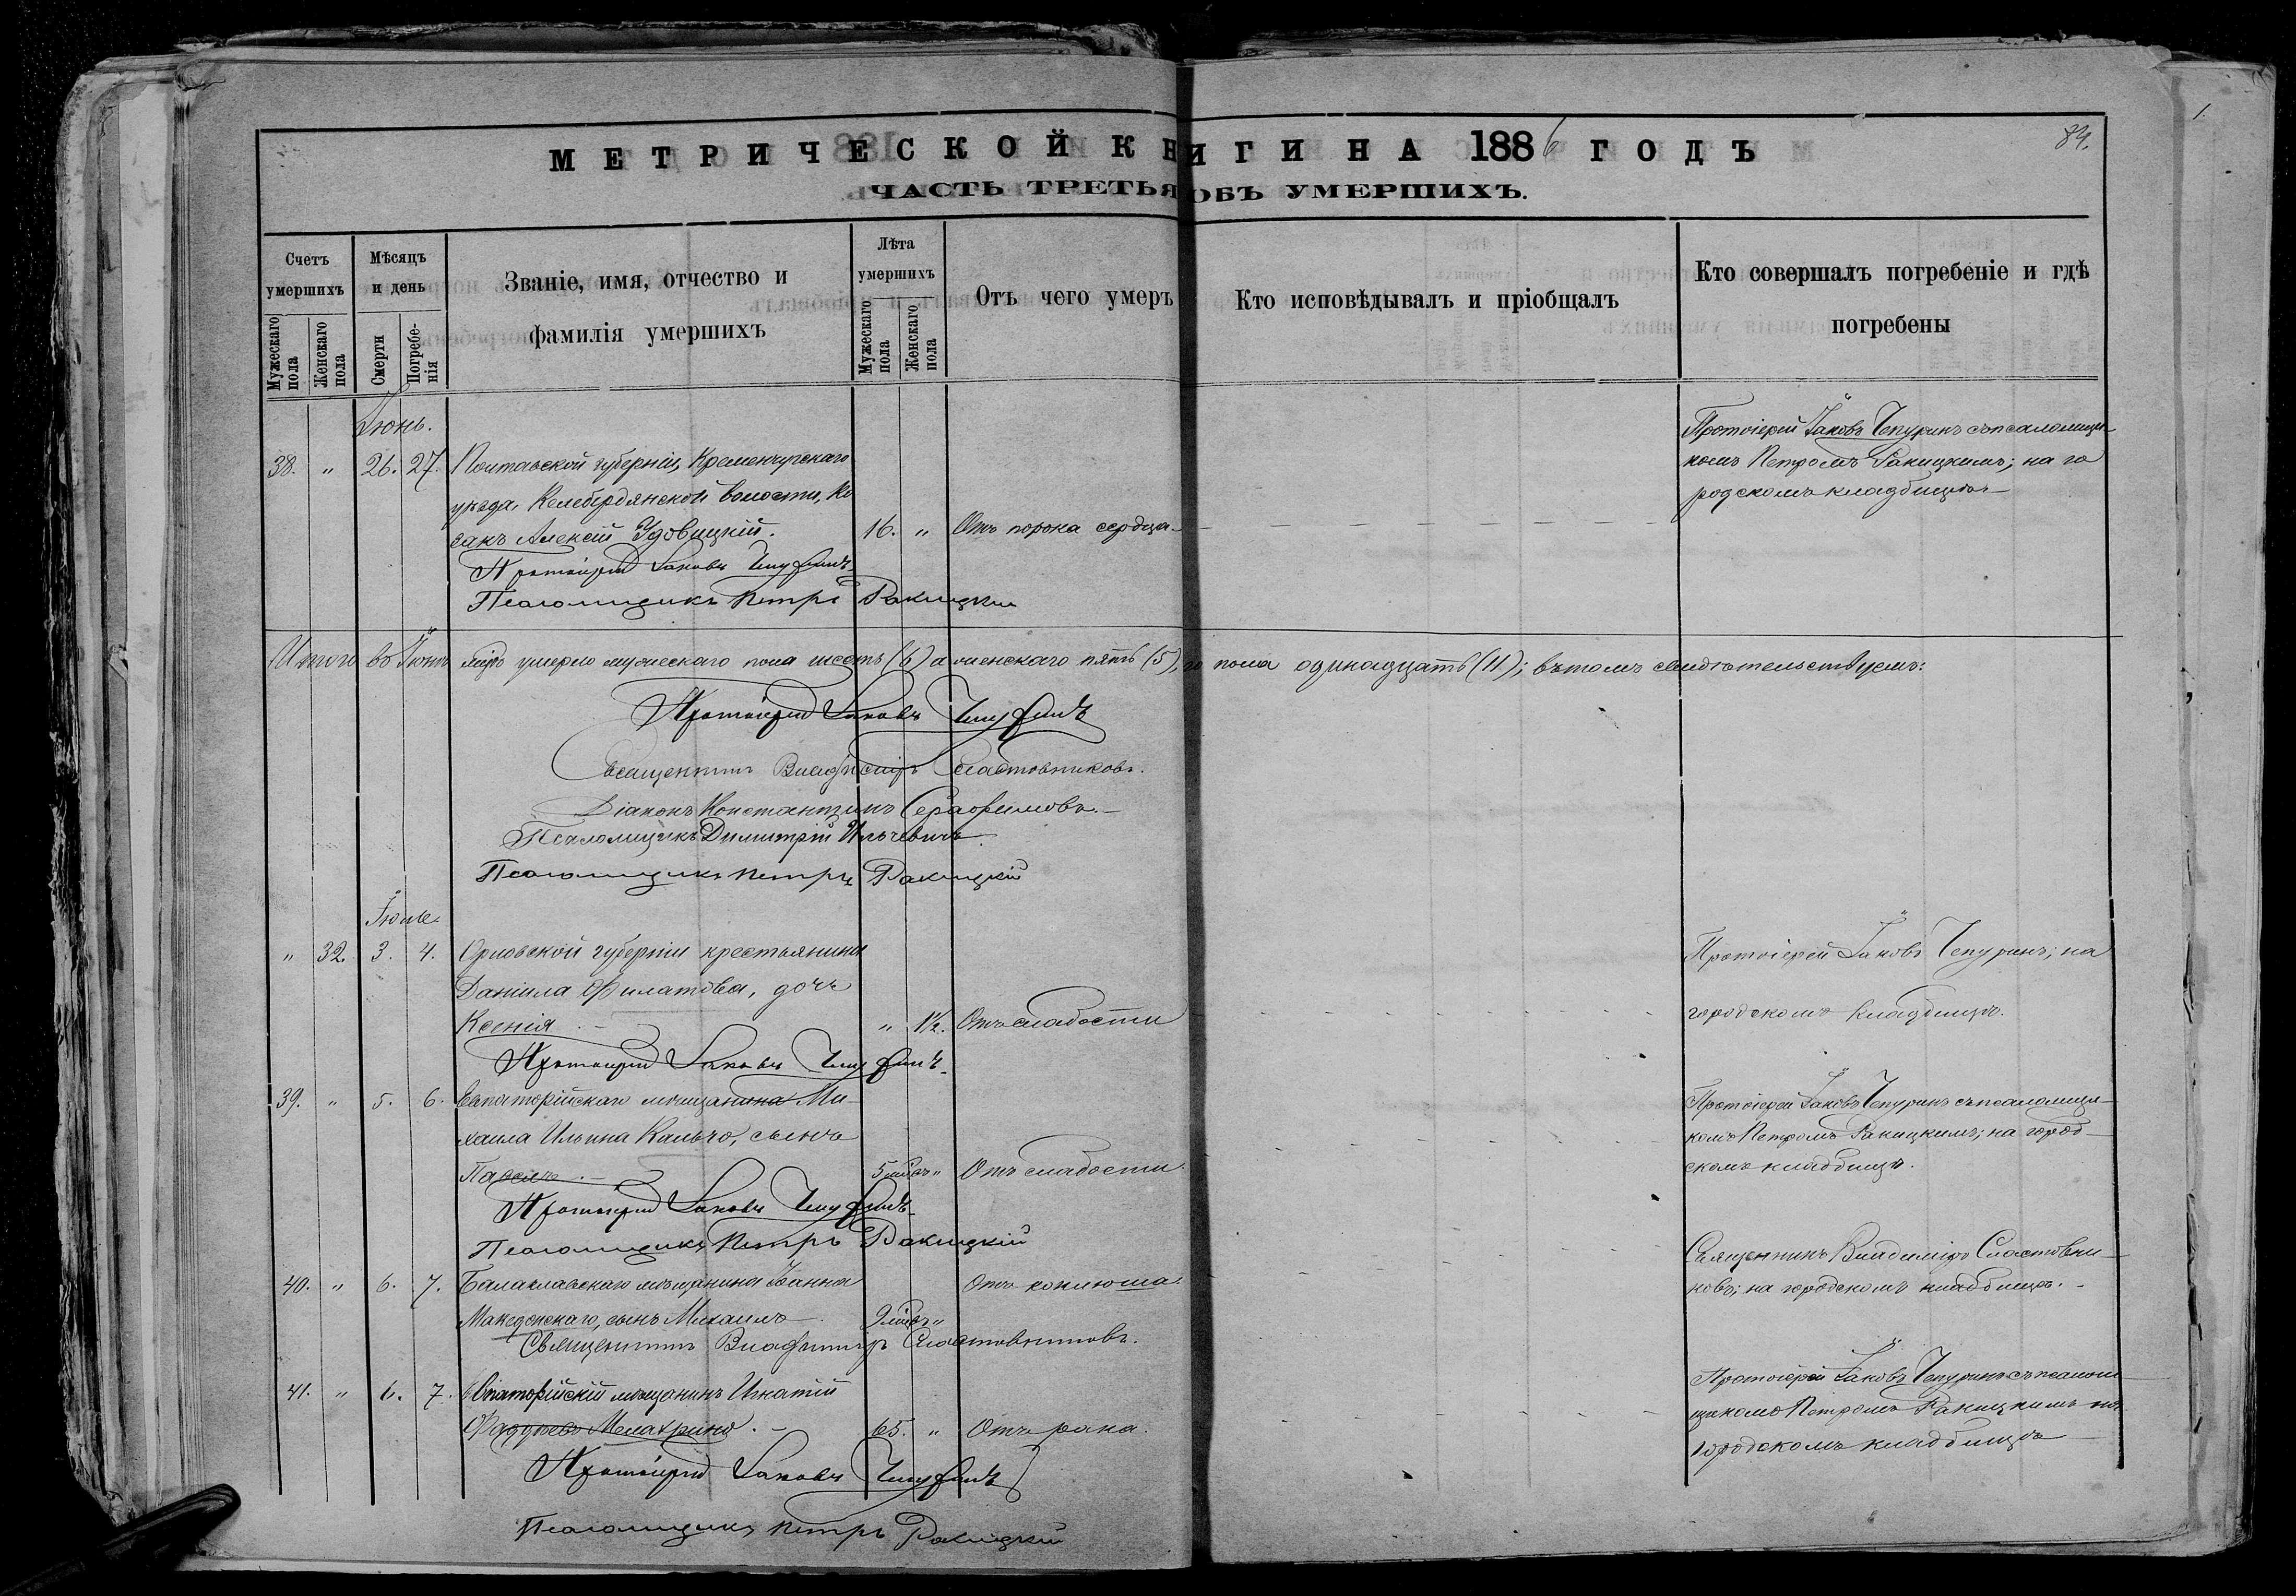 МЕТРИЧЕСКОЙ КНИГИ НА 1886 ГОДЪ
84.
ЧАСТЬ ТРЕТЬЯ ОБЪ УМЕРШИХЪ.
Счетъ умершихъ
Мужескаго пола
Женскаго пола
Мѣсяцъ и день
Смерти
Погребенія
Званіе, имя, отчество и
фамилія умершихъ
Лѣта умершихъ
Мужескаго пола
Женскаго пола
Отъ чего умеръ
Кто исповѣдывалъ и пріобщалъ
Кто совершалъ погребеніе и гдѣ
погребены
Іюнь.
38. " 26. 27. Полтавской губерніи, Кременчугскаго
уѣзда, Келебердянской волости, Ко
закъ Алексій Удовицкій. 16. " Отъ порока сердца
Протоіерей Іаковъ Чепуринъ съ псаломщи-
комъ Петромъ Ракицкимъ; на го
родскомъ кладбищѣ
Протоіерей Іаковъ Чепуринъ
Псаломщикъ Петръ Ракицкій
Итого въ Іюнѣ мцѣ умерло мужескаго пола шесть (6) а женскаго пять (5), пола одинадцать (11); въ томъ свидѣтельствуемъ:
Протоіерей Іаковъ Чепуринъ
Священникъ Владиміръ Сластовниковъ.
Діаконъ Константинъ Серафимовъ.
Псаломщикъ Димитрій Ильчевичъ.
Псаломщикъ Петръ Ракицкій
Іюль.
" 32. 3. 4. Орловской губерніи крестьянина
Даніила Филатова, дочь
Ксенія " 1½. Отъ слабости
Протоіерей Іаковъ Чепуринъ; на
городскомъ кладбищѣ.
Протоіерей Іаковъ Чепуринъ
39. " 5. 6. Евпаторійскаго мѣщанина Ми-
хаила Ильина Кальчо, сынъ
Павелъ 5 мѣсъ " Отъ слабости
Протоіерей Іаковъ Чепуринъ съ псаломщи-
комъ Петромъ Ракицкимъ; на город-
скомъ кладбищѣ.
Протоіерей Іаковъ Чепуринъ
Псаломщикъ Петръ Ракицкій
40. " 6. 7. Балаклавскаго мѣщанина Іоанна
Македонскаго, сынъ Михаилъ 9 мѣсъ " Отъ коклюша.
Священникъ Владиміръ Сластовни-
ковъ; на городскомъ кладбищѣ.
Священникъ Владиміръ Сластовниковъ.
41. " 6. 7. Евпаторійскій мѣщанинъ Игнатій
Фаддѣевъ 65. " Отъ рака.
Протоіерей Іаковъ Чепуринъ съ псалом-
щикомъ Петромъ Ракицкимъ на
городскомъ кладбищѣ
Протоіерей Іаковъ Чепуринъ
Псаломщикъ Петръ Ракицкій